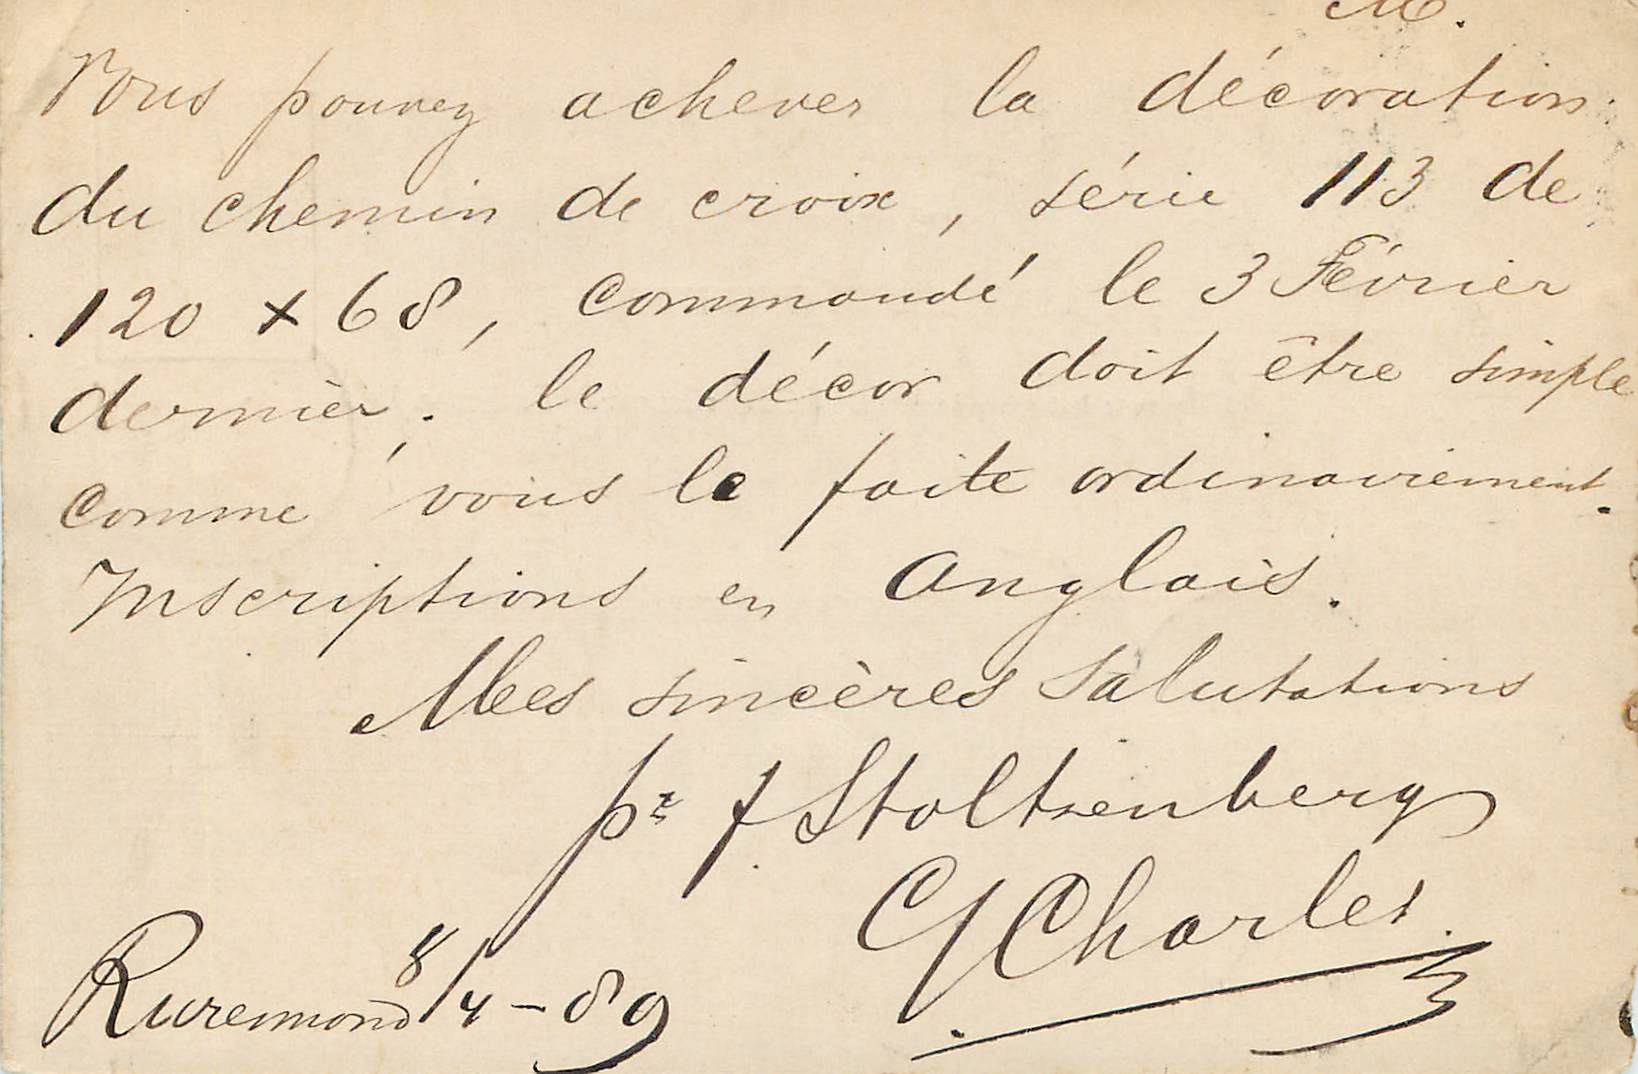 M.
Vous pouvez achever la décoration
du chemin de croix, série 113 de
120 x 68, commandé le 3 Février
dernier. le décor doit être simple,
comme vous le faite ordinairement.
Inscriptions en Anglais.
Mes sincères salutations
pr f Stoltzenberg
G Charles.
Ruremond 8/4-89